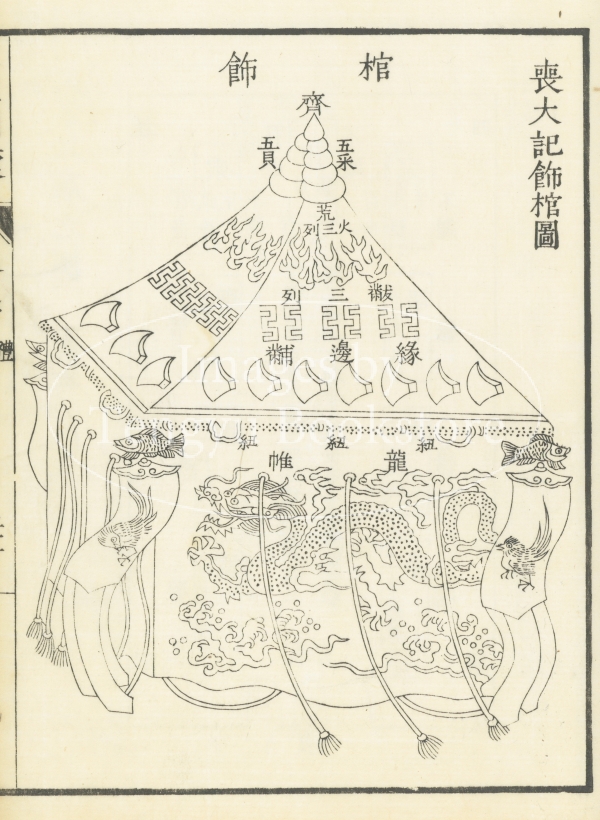 喪大記飾棺圖
棺飾
齊
五采
五貝
荒
火三列
黻三列
緣邊黼
紐
紐
紐
龍帷
Images by